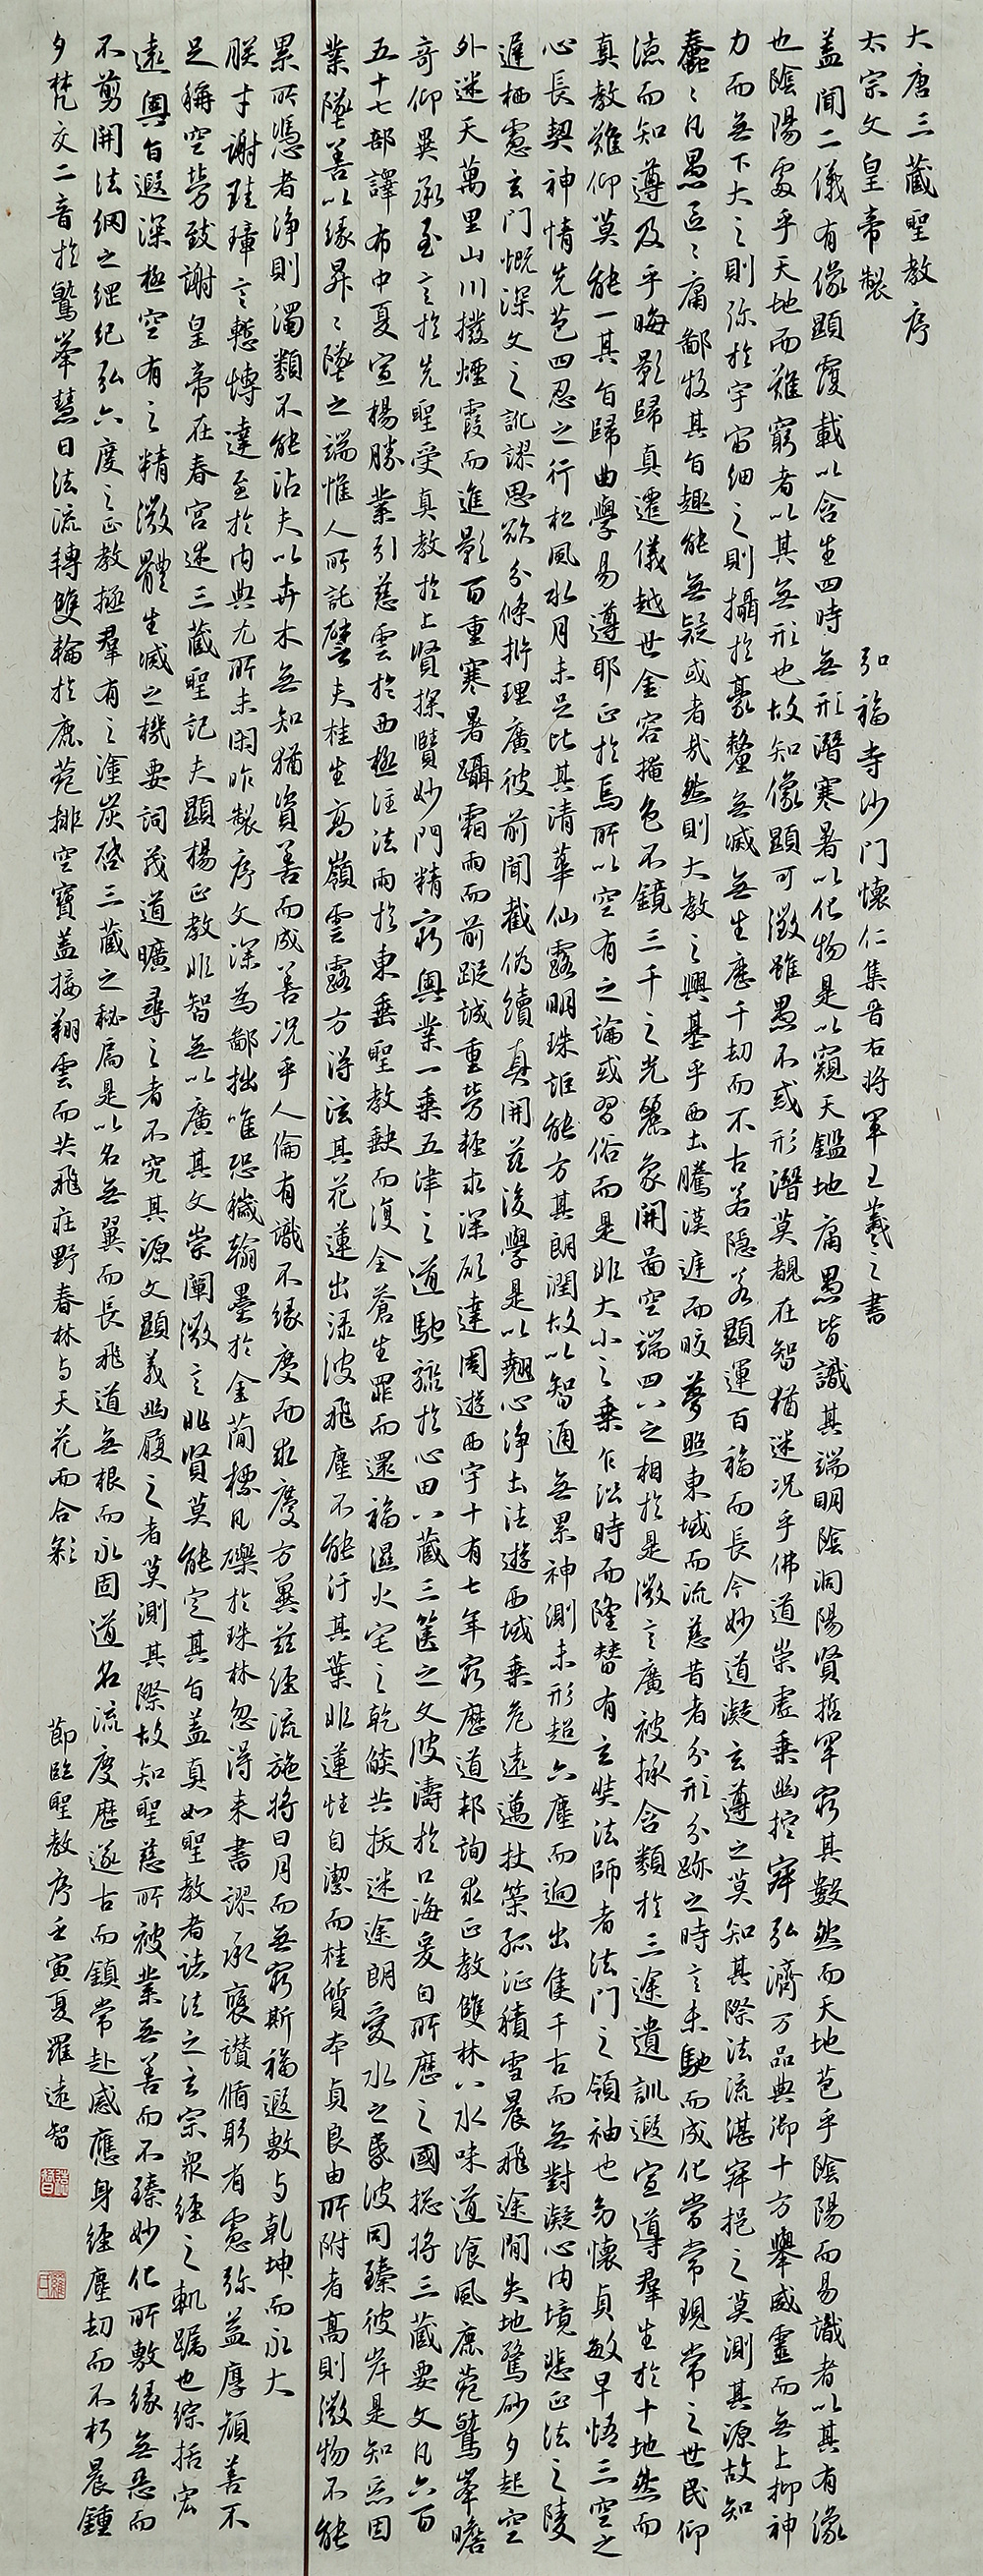 大唐三藏聖教序
太宗文皇帝製　弘福寺沙門懷仁集晉右將軍王羲之書
蓋聞二儀有像顯覆載以含生四時無形潛寒暑以化物是以窺天鑑地庸愚皆識其端明陰洞陽賢哲罕窮其數然而天地苞乎陰陽而易識者以其有像
也陰陽處乎天地而難窮者以其無形也故知像顯可徵雖愚不惑形潛莫覩在智猶迷況乎佛道崇虛乘幽控寂弘濟万品典御十方舉威靈而無上抑神
力而無下大之則弥於宇宙細之則攝於豪釐無滅無生歷千劫而不古若隱若顯運百福而長今妙道凝玄遵之莫知其際法流湛寂挹之莫測其源故知
蠢〻凡愚區〻庸鄙投其旨趣能無疑或者哉然則大教之興基乎西土騰漢庭而皎夢照東域而流慈昔者分形分跡之時言未馳而成化當常現常之世民仰
德而知遵及乎晦影歸真遷儀越世金容掩色不鏡三千之光麗象開圖空端四八之相於是微言廣被拯含類於三途遺訓遐宣導羣生於十地然而
真教難仰莫能一其旨歸曲學易遵耶正於焉所以空有之論或習俗而是非大小之乘乍沿時而隆替有玄奘法師者法門之領袖也幼懷貞敏早悟三空之
心長契神情先苞四忍之行松風水月未足比其清華仙露明珠詎能方其朗潤故以智通無累神測未形超六塵而迥出隻千古而無對凝心內境悲正法之陵
遲栖慮玄門慨深文之訛謬思欲分條析理廣彼前聞截偽續真開茲後學是以翹心淨土法遊西域乘危遠邁杖策孤征積雪晨飛途間失地驚砂夕起空
外迷天萬里山川撥煙霞而進影百重寒暑躡霜雨而前蹤誠重勞輕求深願達周遊西宇十有七年窮歷道邦詢求正教雙林八水味道湌風鹿菀鷲峯瞻
奇仰異承至言於先聖受真教於上賢探賾妙門精窮奧業一乘五津之道馳驟於心田八藏三篋之文波濤於口海爰自所歷之國捴將三藏要文凡六百
五十七部譯布中夏宣楊勝業引慈雲於西極注法雨於東垂聖教缺而復全蒼生罪而還福濕火宅之乾燄共拔迷途朗愛水之昏波同臻彼岸是知惡因
業墜善以緣昇〻墜之端惟人所託譬夫桂生高嶺雲露方得泫其花蓮出淥波飛塵不能汙其葉非蓮性自潔而桂質本貞良由所附者高則微物不能
累所憑者淨則濁類不能沾夫以卉木無知猶資善而成善況乎人倫有識不緣慶而求慶方冀茲經流施將日月而無窮斯福遐敷与乾坤而永大
朕才謝珪璋言慙博達至於內典尤所未閑昨製序文深為鄙拙唯恐穢翰墨於金簡標瓦礫於珠林忽得來書謬承褒讚循躬省慮弥益厚顏善不
足稱空勞致謝皇帝在春宮述三藏聖記夫顯楊正教非智無以廣其文崇闡微言非賢莫能定其旨蓋真如聖教者諸法之玄宗眾經之軌躅也綜括宏
遠奧旨遐深極空有之精微體生滅之機要詞茂道曠尋之者不究其源文顯義幽履之者莫測其際故知聖慈所被業無善而不臻妙化所敷緣無惡而
不剪開法網之綱紀弘六度之正教拯羣有之塗炭啓三藏之秘扃是以名無翼而長飛道無根而永固道名流慶歷遂古而鎮常赴感應身經塵劫而不朽晨鍾
夕梵交二音於鷲峯慧日法流轉雙輪於鹿菀排空寶蓋接翔雲而共飛莊野春林与天花而合彩　節臨聖教序壬寅夏羅遠智